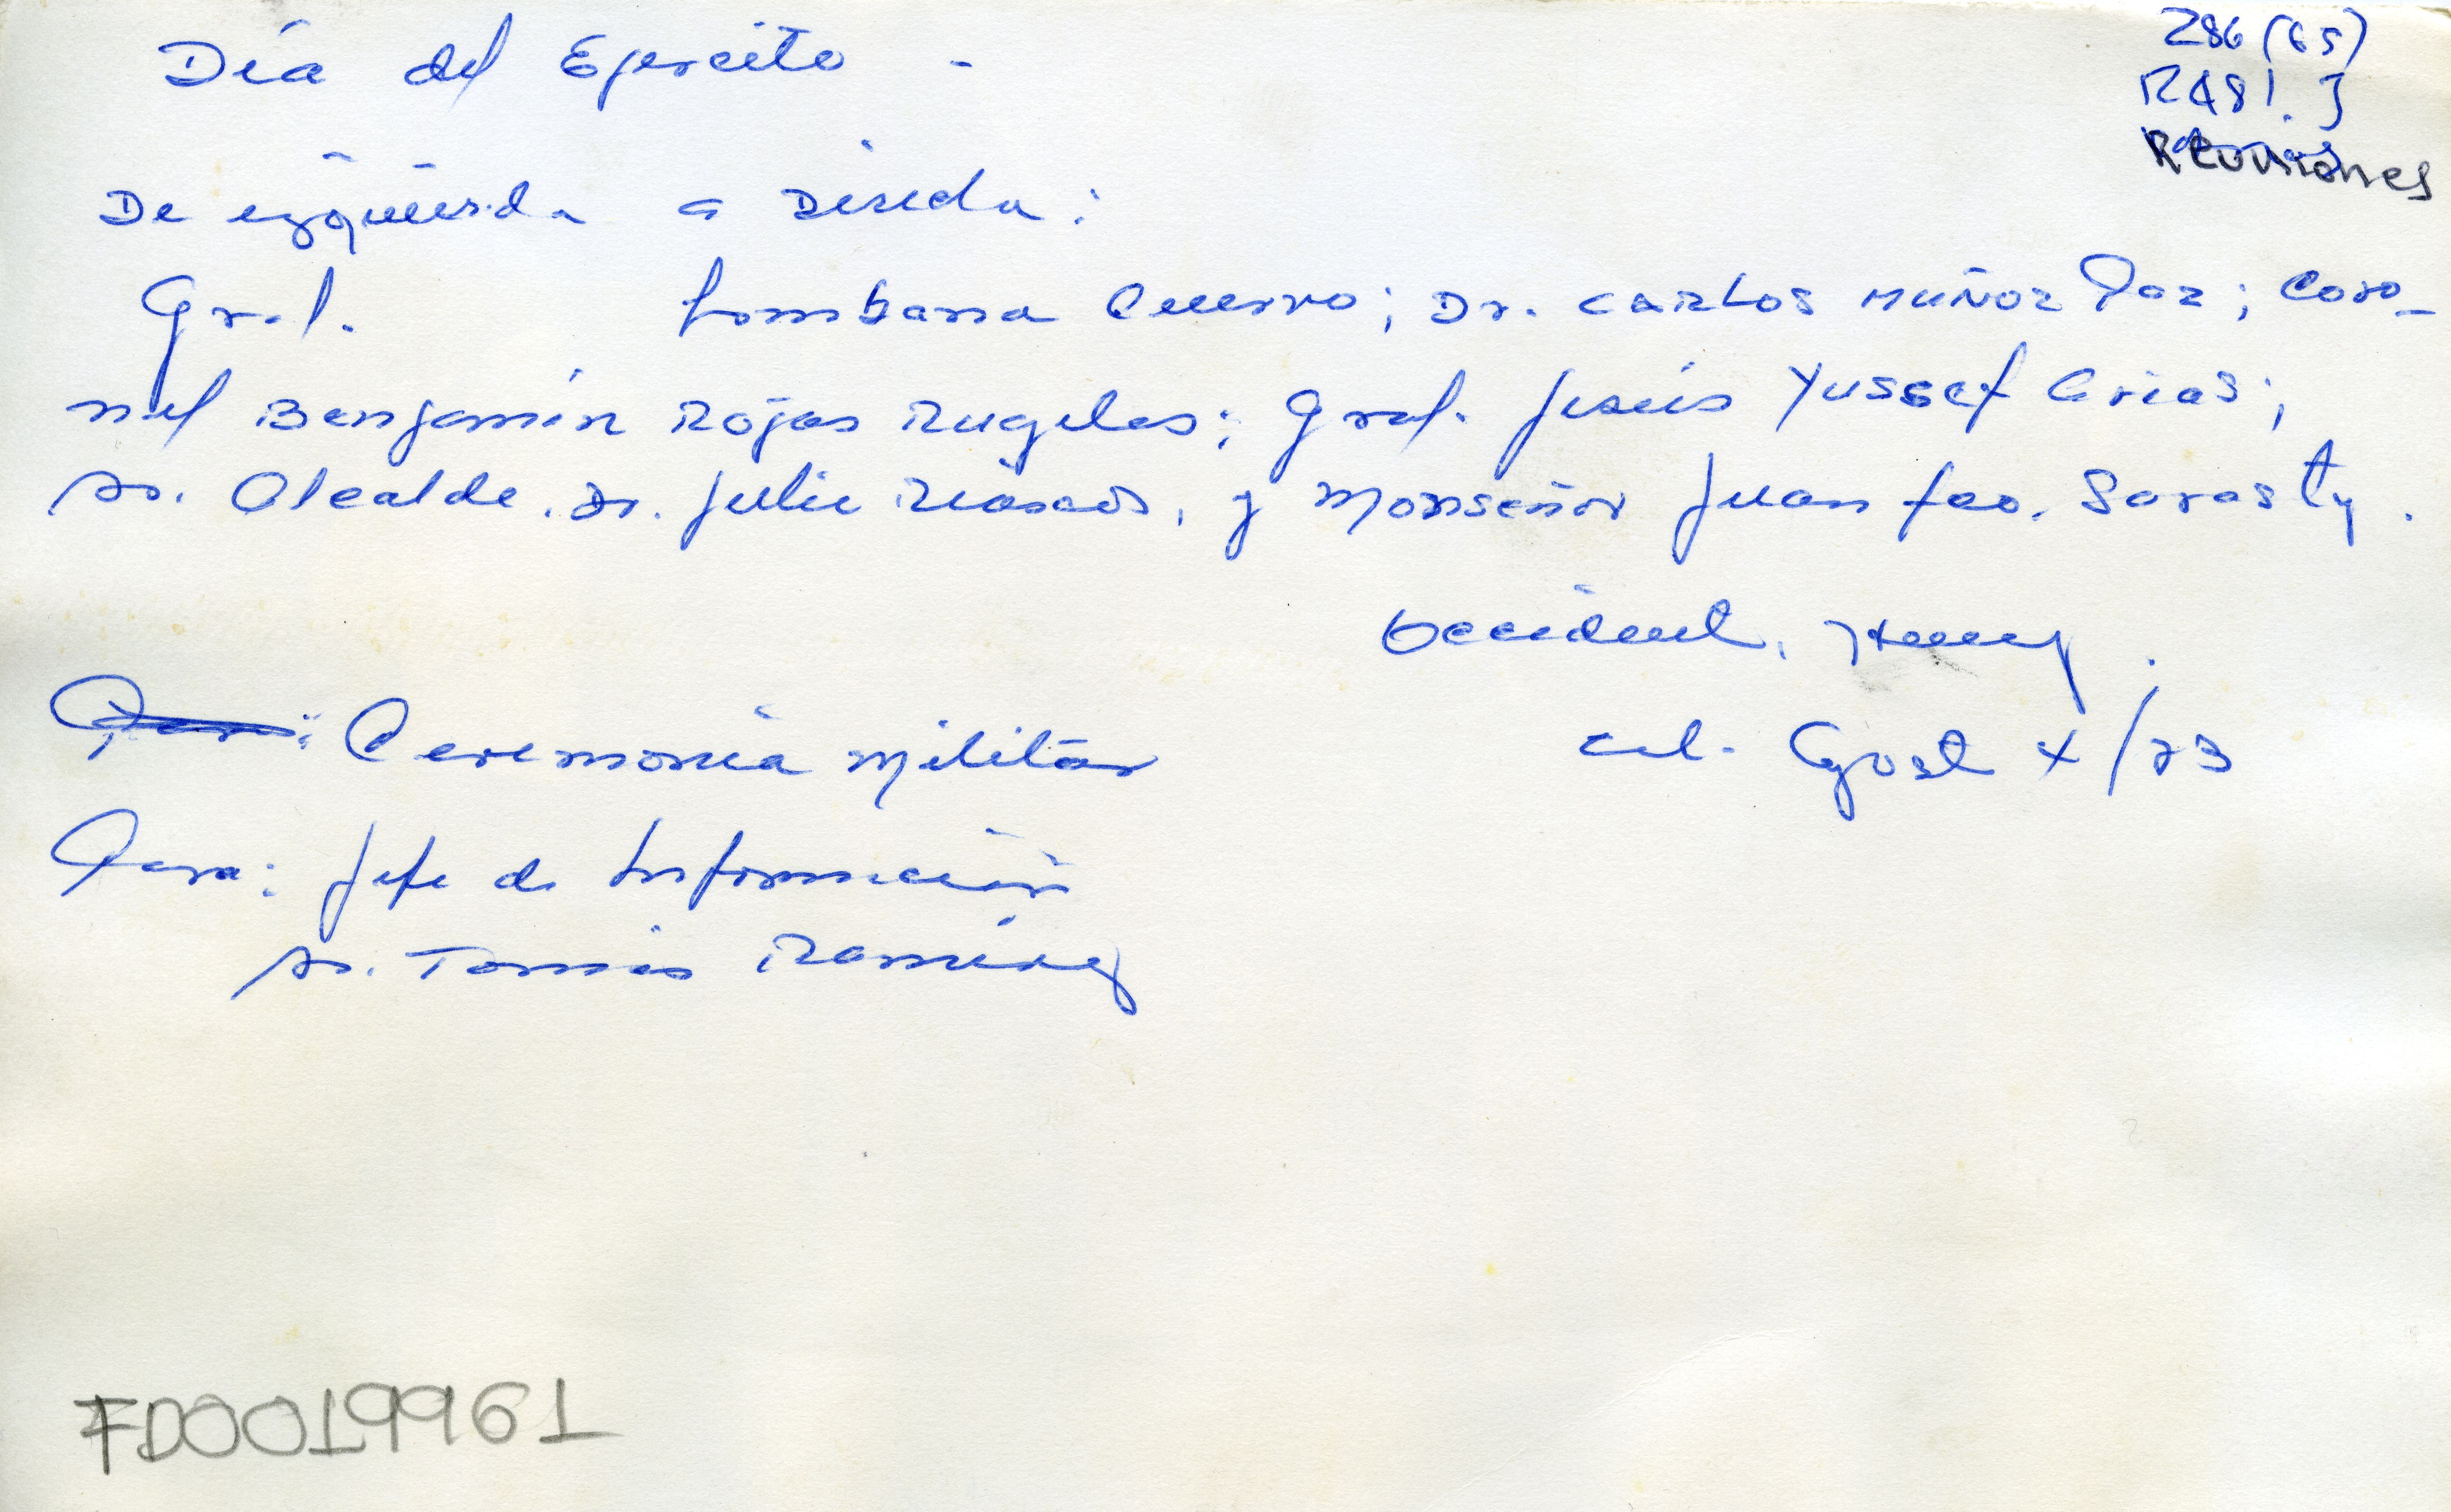 Día del Ejercito -
286 (65)
R481.J
Reuniones
De izquierda a Direcha:
Gral. Lombana Cuervo; Dr. CARLOS MUÑOZ Paz; Coro-
nel Benjamín Rojas Rugeles; Gral. Jesús Yussef Arias;
Sr. Alcalde. Dr. Julio Riascos, y Monseñor Juan fco. Sarasty.
Occident. Henry.
Cal. Agost X/73
Ceremonia Militar
Para: Jefe de Información
Sr. Tomás Ramírez
FD0019961